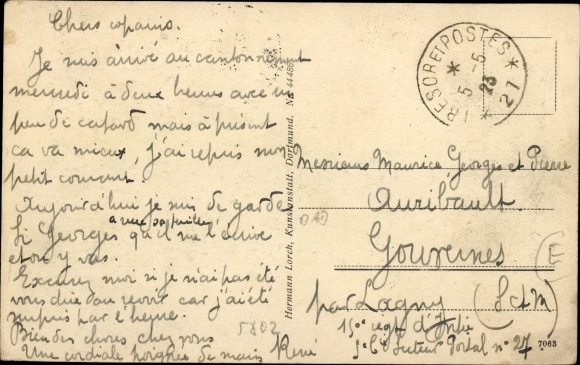 Chers copains.
Je suis arrivé au cantonnement
mercredi à deux heures avec un
peu de cafard mais à présent
ça va mieux, j'ai repris mon
petit courant.
Aujourd'hui je suis de garde
Si Georges a une
qu'il me l'écrive
et on y vas.
Excusez moi si je n'ai pas été
vous dire au revoir car j'ai été
surpris par l'heure.
Bien des choses chez vous
Une cordiale poignée de mains René
5802
Hermann Lorch, Kunstanstalt, Dortmund. No 44486
TRESOR ET POSTES
* 5-5 *
23
21
Messieurs Maurice, Georges et Pierre
Auribault
Gouvernes
par Lagny (S et M)
E
15e regt d'Inftie
5e Cie Secteur Postal n° 27
7063